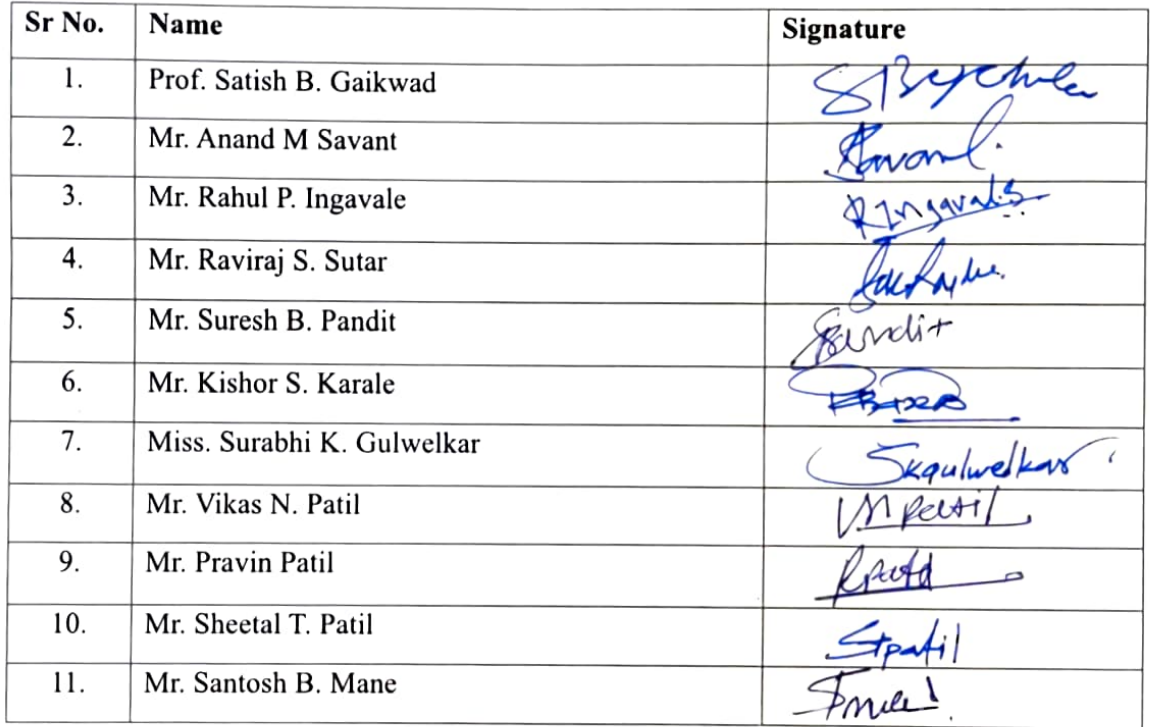 Sr No. Name Signature
1. Prof. Satish B. Gaikwad
2. Mr. Anand M Savant
3. Mr. Rahul P. Ingavale RIngavale
4. Mr. Raviraj S. Sutar
5. Mr. Suresh B. Pandit
6. Mr. Kishor S. Karale
7. Miss. Surabhi K. Gulwelkar Skgulwelkar
8. Mr. Vikas N. Patil VNPatil
9. Mr. Pravin Patil
10. Mr. Sheetal T. Patil Stpatil
11. Mr. Santosh B. Mane